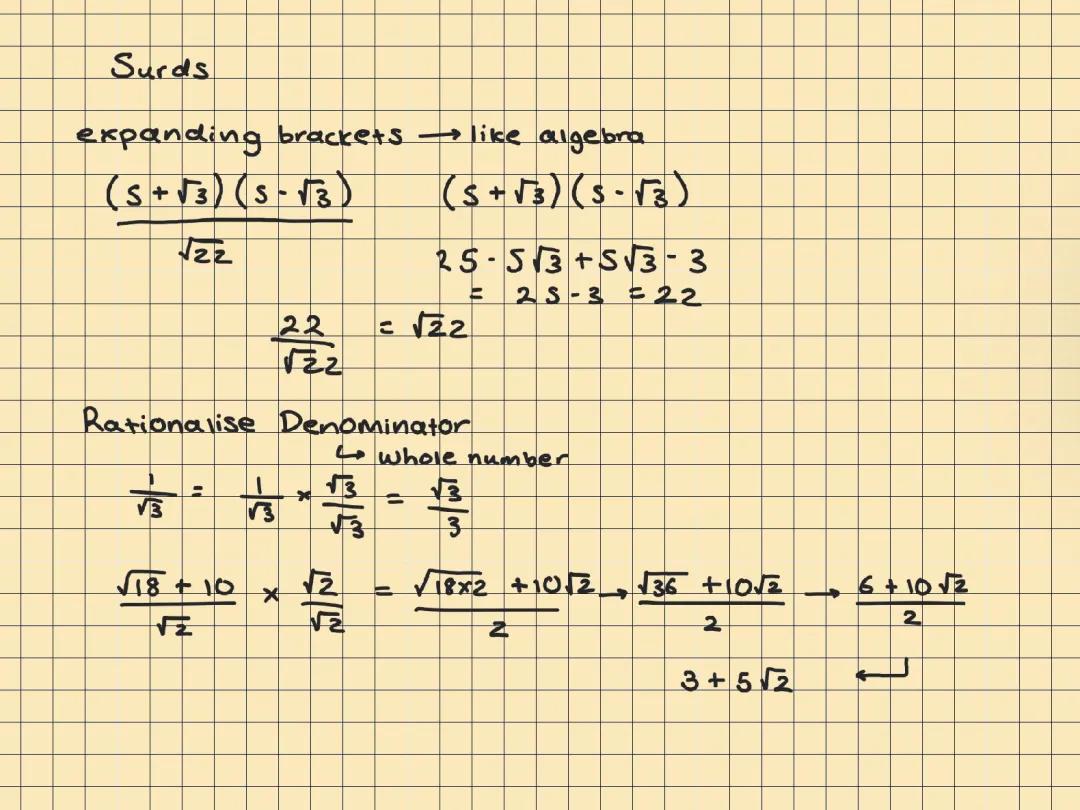 Surds
expanding brackets → like algebra
(5+√3)(5-√3) / √22    (5+√3)(5-√3)
25-5√3+5√3-3
= 25-3 = 22
22/√22 = √22
Rationalise Denominator
↳ whole number
1/√3 = 1/√3 × √3/√3 = √3/3
(√18 + 10)/√2 × √2/√2 = (√(18×2) + 10√2)/2 → (√36 + 10√2)/2 → (6 + 10√2)/2
3 + 5√2 ↵